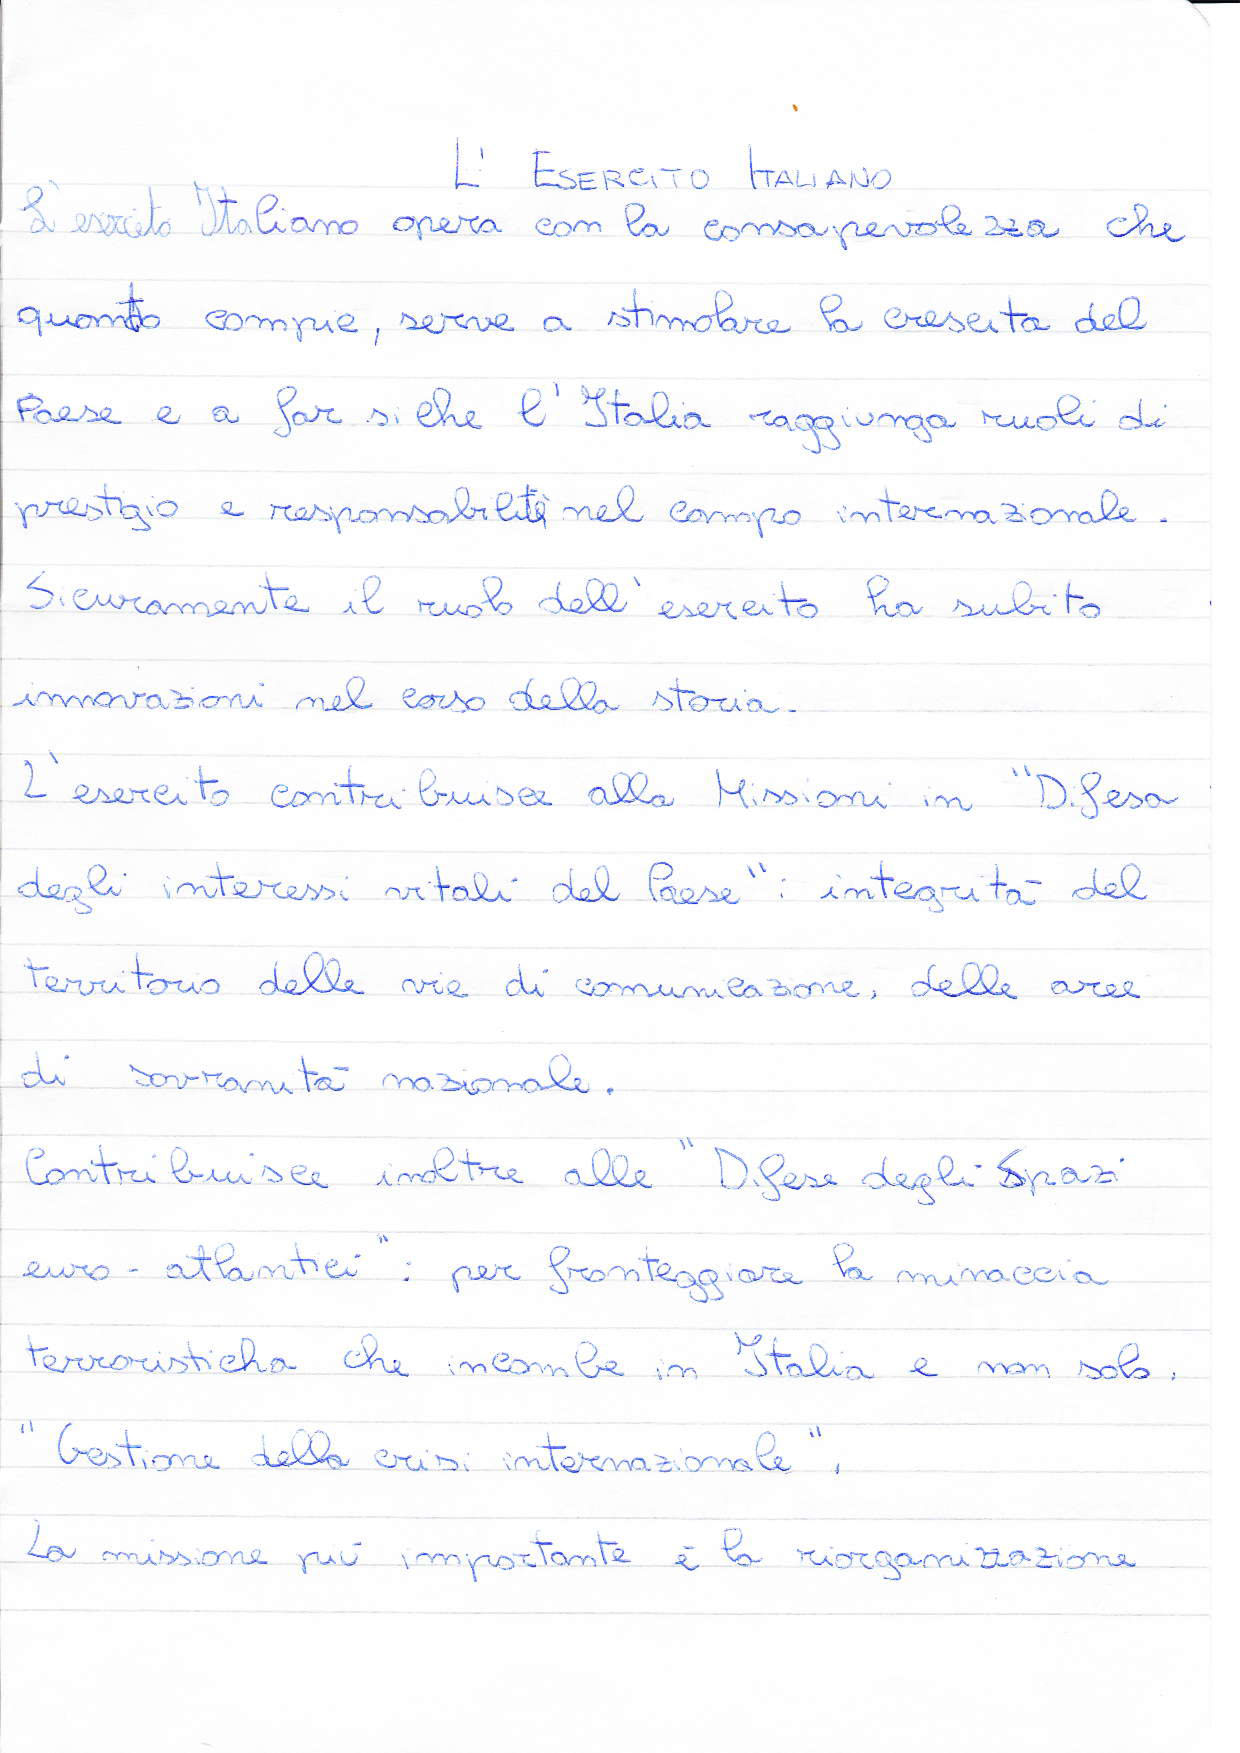 L' ESERCITO ITALIANO
L'esercito Italiano opera con la consapevolezza che
quanto compie, serve a stimolare la crescita del
Paese e a far si che l'Italia raggiunga ruoli di
prestigio e responsabilità nel campo internazionale.
Sicuramente il ruolo dell'esercito ha subito
innovazioni nel corso della storia.
L'esercito contribuisce alla Missioni in "Difesa
degli interessi vitali del Paese": integrità del
territorio delle vie di comunicazione, delle aree
di sovranità nazionale.
Contribuisce inoltre alle "Difese degli Spazi
euro-atlantici": per fronteggiare la minaccia
terroristicha che incombe in Italia e non solo.
"Gestione della crisi internazionale".
La missione più importante è la riorganizzazione